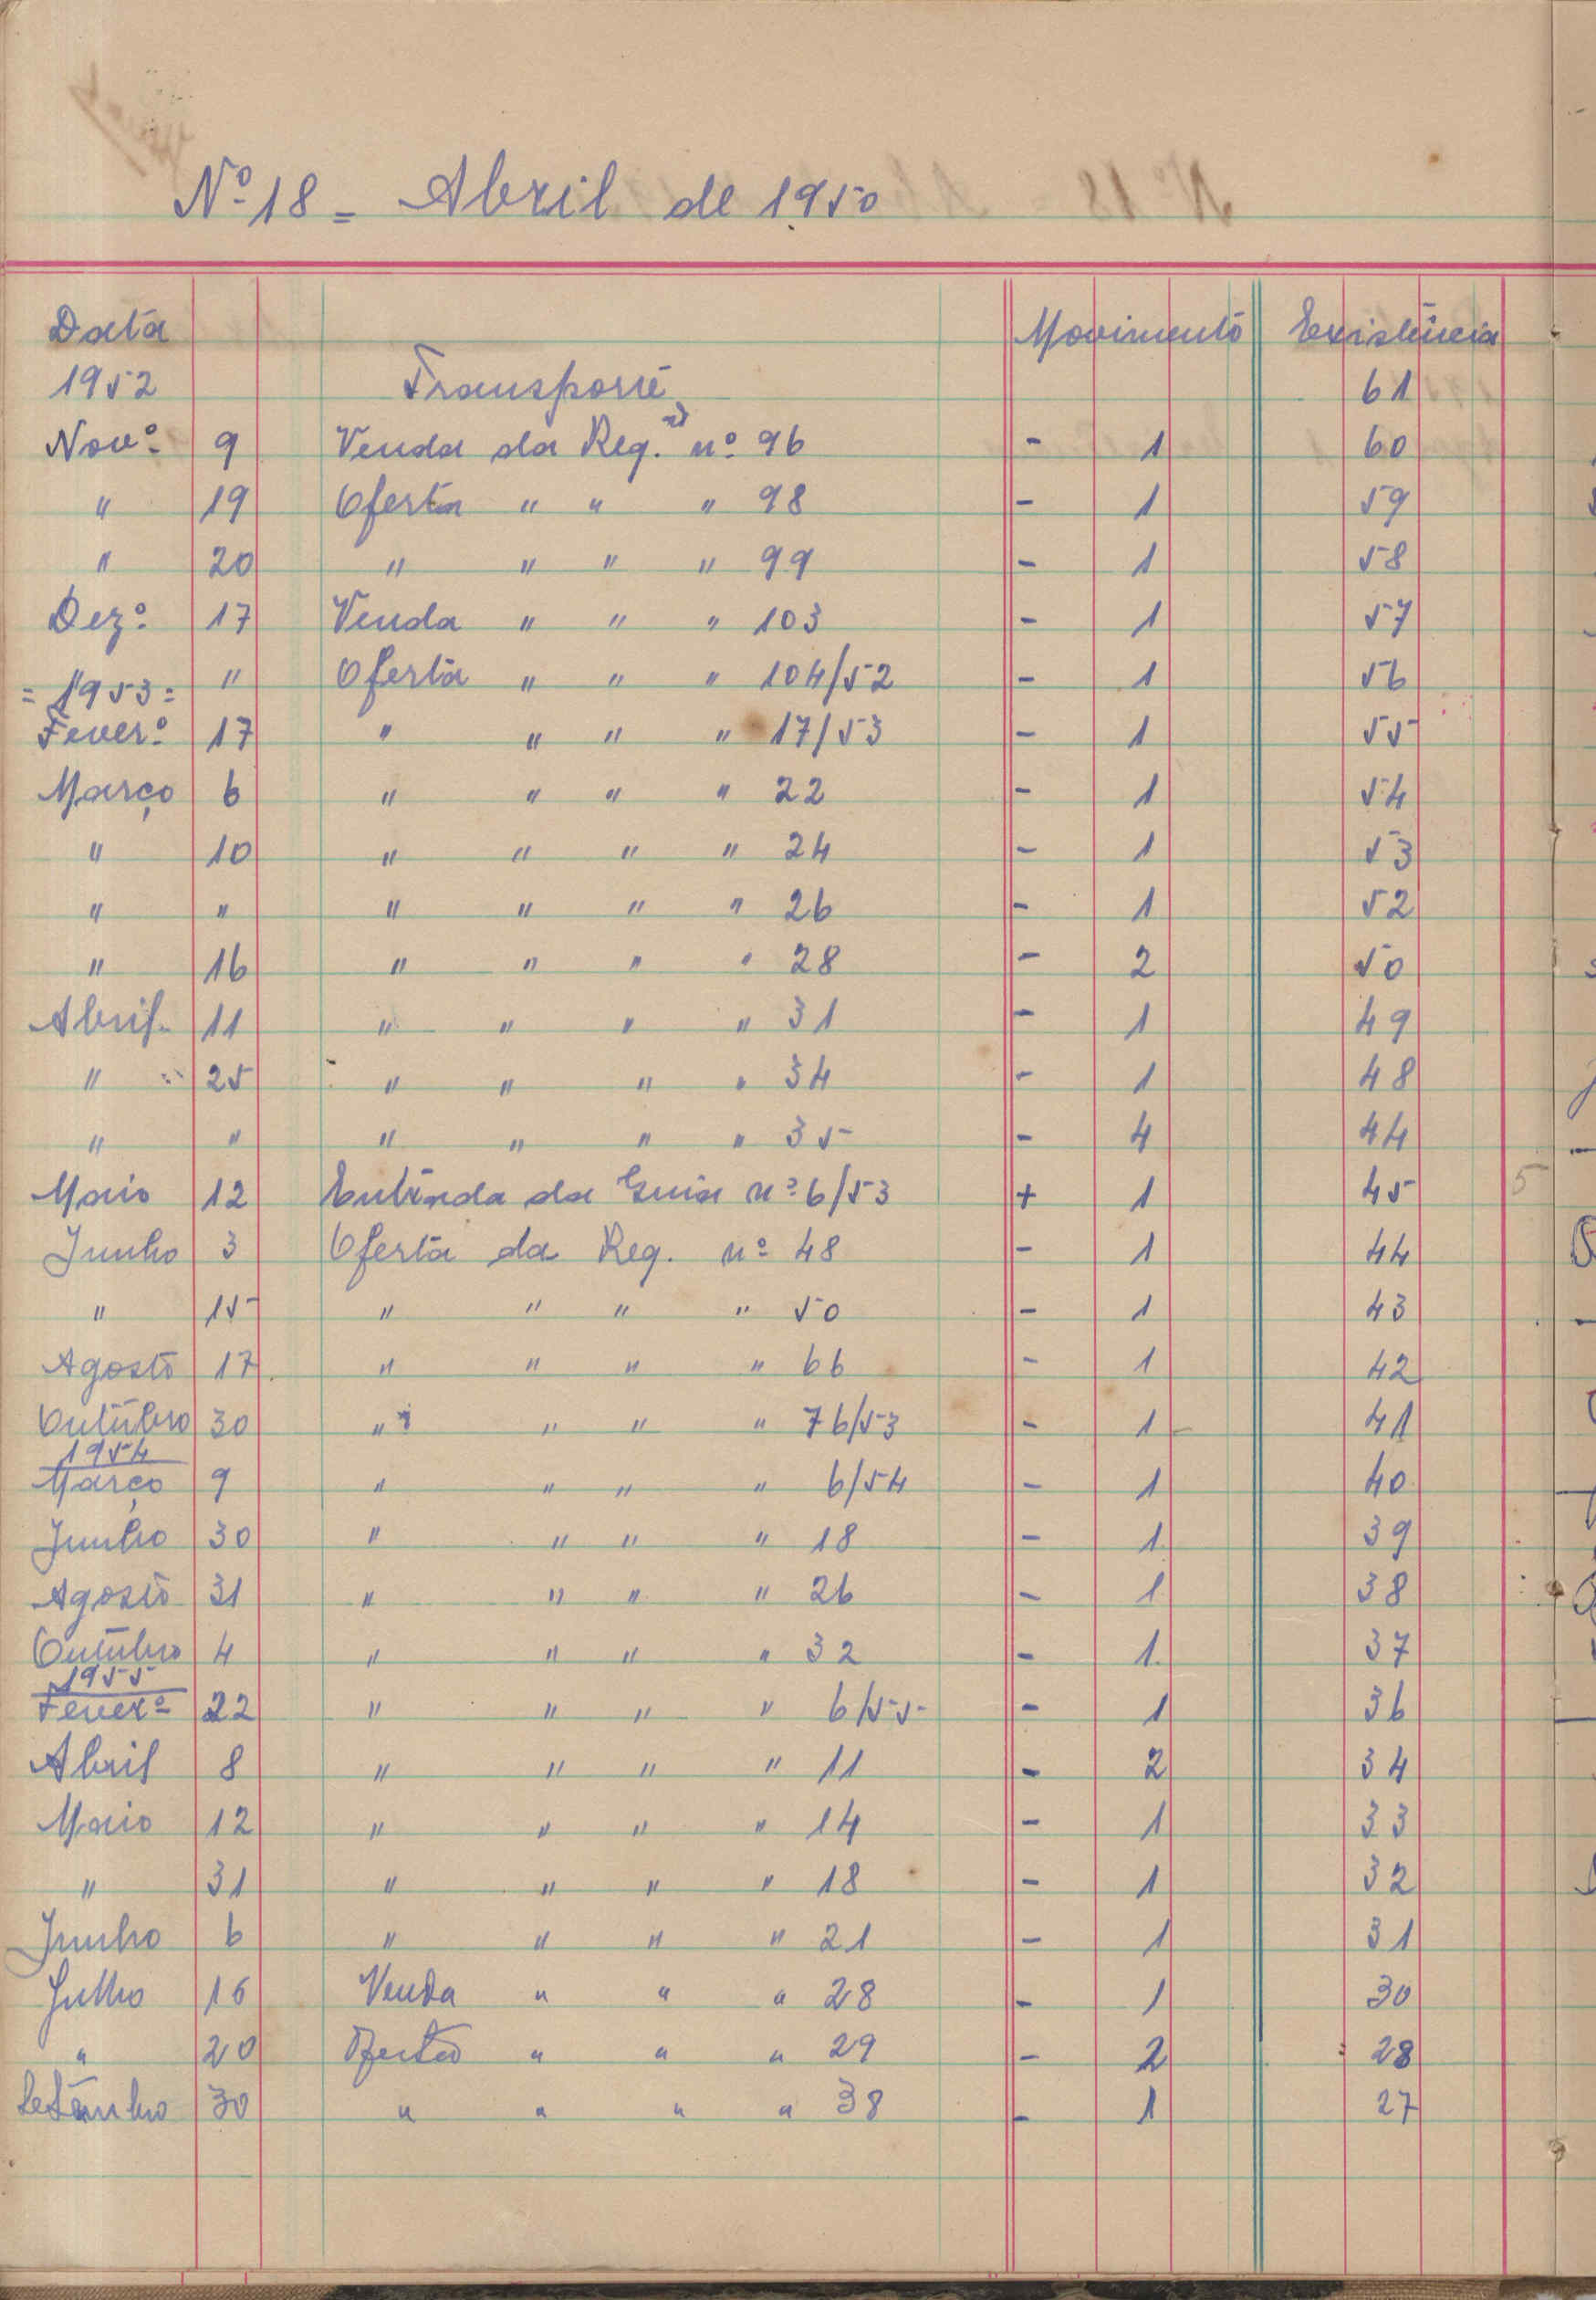 Nº 18 = Abril de 1950
Data Movimento Existência
1952 Transporte 61
Novº 9 Venda da Reg. nº 96 - 1 60
" 19 Oferta " " " 98 - 1 59
" 20 " " " " 99 - 1 58
Dezº 17 Venda " " " 103 - 1 57
" " Oferta " " " 104/52 - 1 56
= 1953 =
Feverº 17 " " " " 17/53 - 1 55
Março 6 " " " " 22 - 1 54
" 10 " " " " 24 - 1 53
" " " " " " 26 - 1 52
" 16 " " " " 28 - 2 50
Abril 11 " " " " 31 - 1 49
" 25 " " " " 34 - 1 48
" " " " " " 35 - 4 44
Maio 12 Entrada da Guia nº 6/53 + 1 45 5
Junho 3 Oferta da Reg. nº 48 - 1 44
" 15 " " " " 50 - 1 43
Agosto 17 " " " " 66 - 1 42
Outubro 30 " " " " 76/53 - 1 41
1954
Março 9 " " " " 6/54 - 1 40
Junho 30 " " " " 18 - 1 39
Agosto 31 " " " " 26 - 1 38
Outubro 4 " " " " 32 - 1 37
1955
Feverº 22 " " " " 6/55 - 1 36
Abril 8 " " " " 11 - 2 34
Maio 12 " " " " 14 - 1 33
" 31 " " " " 18 - 1 32
Junho 6 " " " " 21 - 1 31
Julho 16 Venda " " " 28 - 1 30
" 20 Oferta " " " 29 - 2 28
Setembro 30 " " " " 38 - 1 27